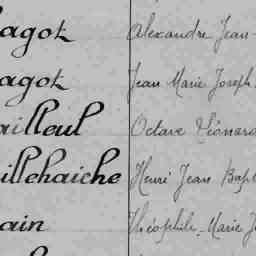 agot Alexandre Jean
agot Jean Marie Joseph
ailleul Octave Léonard
illehaiche Henri Jean Bapt
ain Théophile Marie J